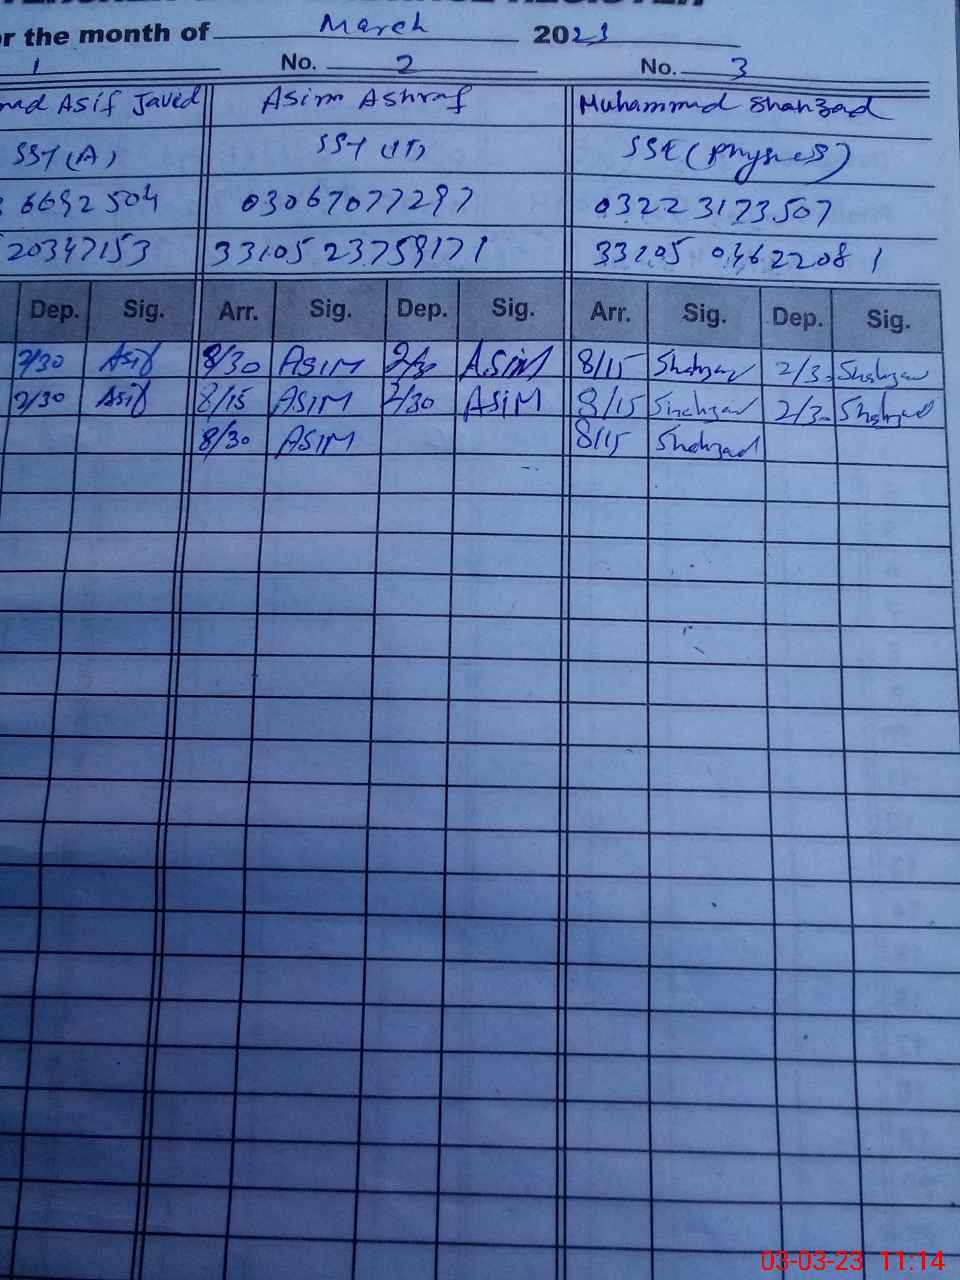 or the month of March 2023
1 No. 2 No. 3
Asif Javed Asim Ashraf Muhammad Shahzad
SST (A) SST (IT) SSE (Physics)
6692504 03067077297 03223173507
20347153 33105 23759171 33105 04622081
Dep. Sig. Arr. Sig. Dep. Sig. Arr. Sig. Dep. Sig.
2/30 Asif 8/30 ASIM 2/30 ASIM 8/15 Shahzad 2/30 Shahzad
2/30 Asif 8/15 ASIM 2/30 ASIM 8/15 Shahzad 2/30 Shahzad
8/30 ASIM 8/15 Shahzad
03-03-23 11:14